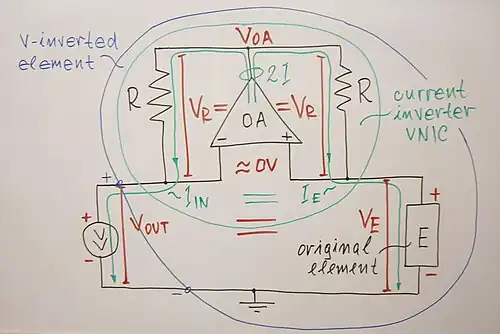 V-inverted
element
VOA
2I
R
VR =
= VR
R
OA
-
+
current
inverter
VNIC
≈ 0V
+
~ IIN
IE ~
+
+
VOUT
VE
E
-
original
element
-
-